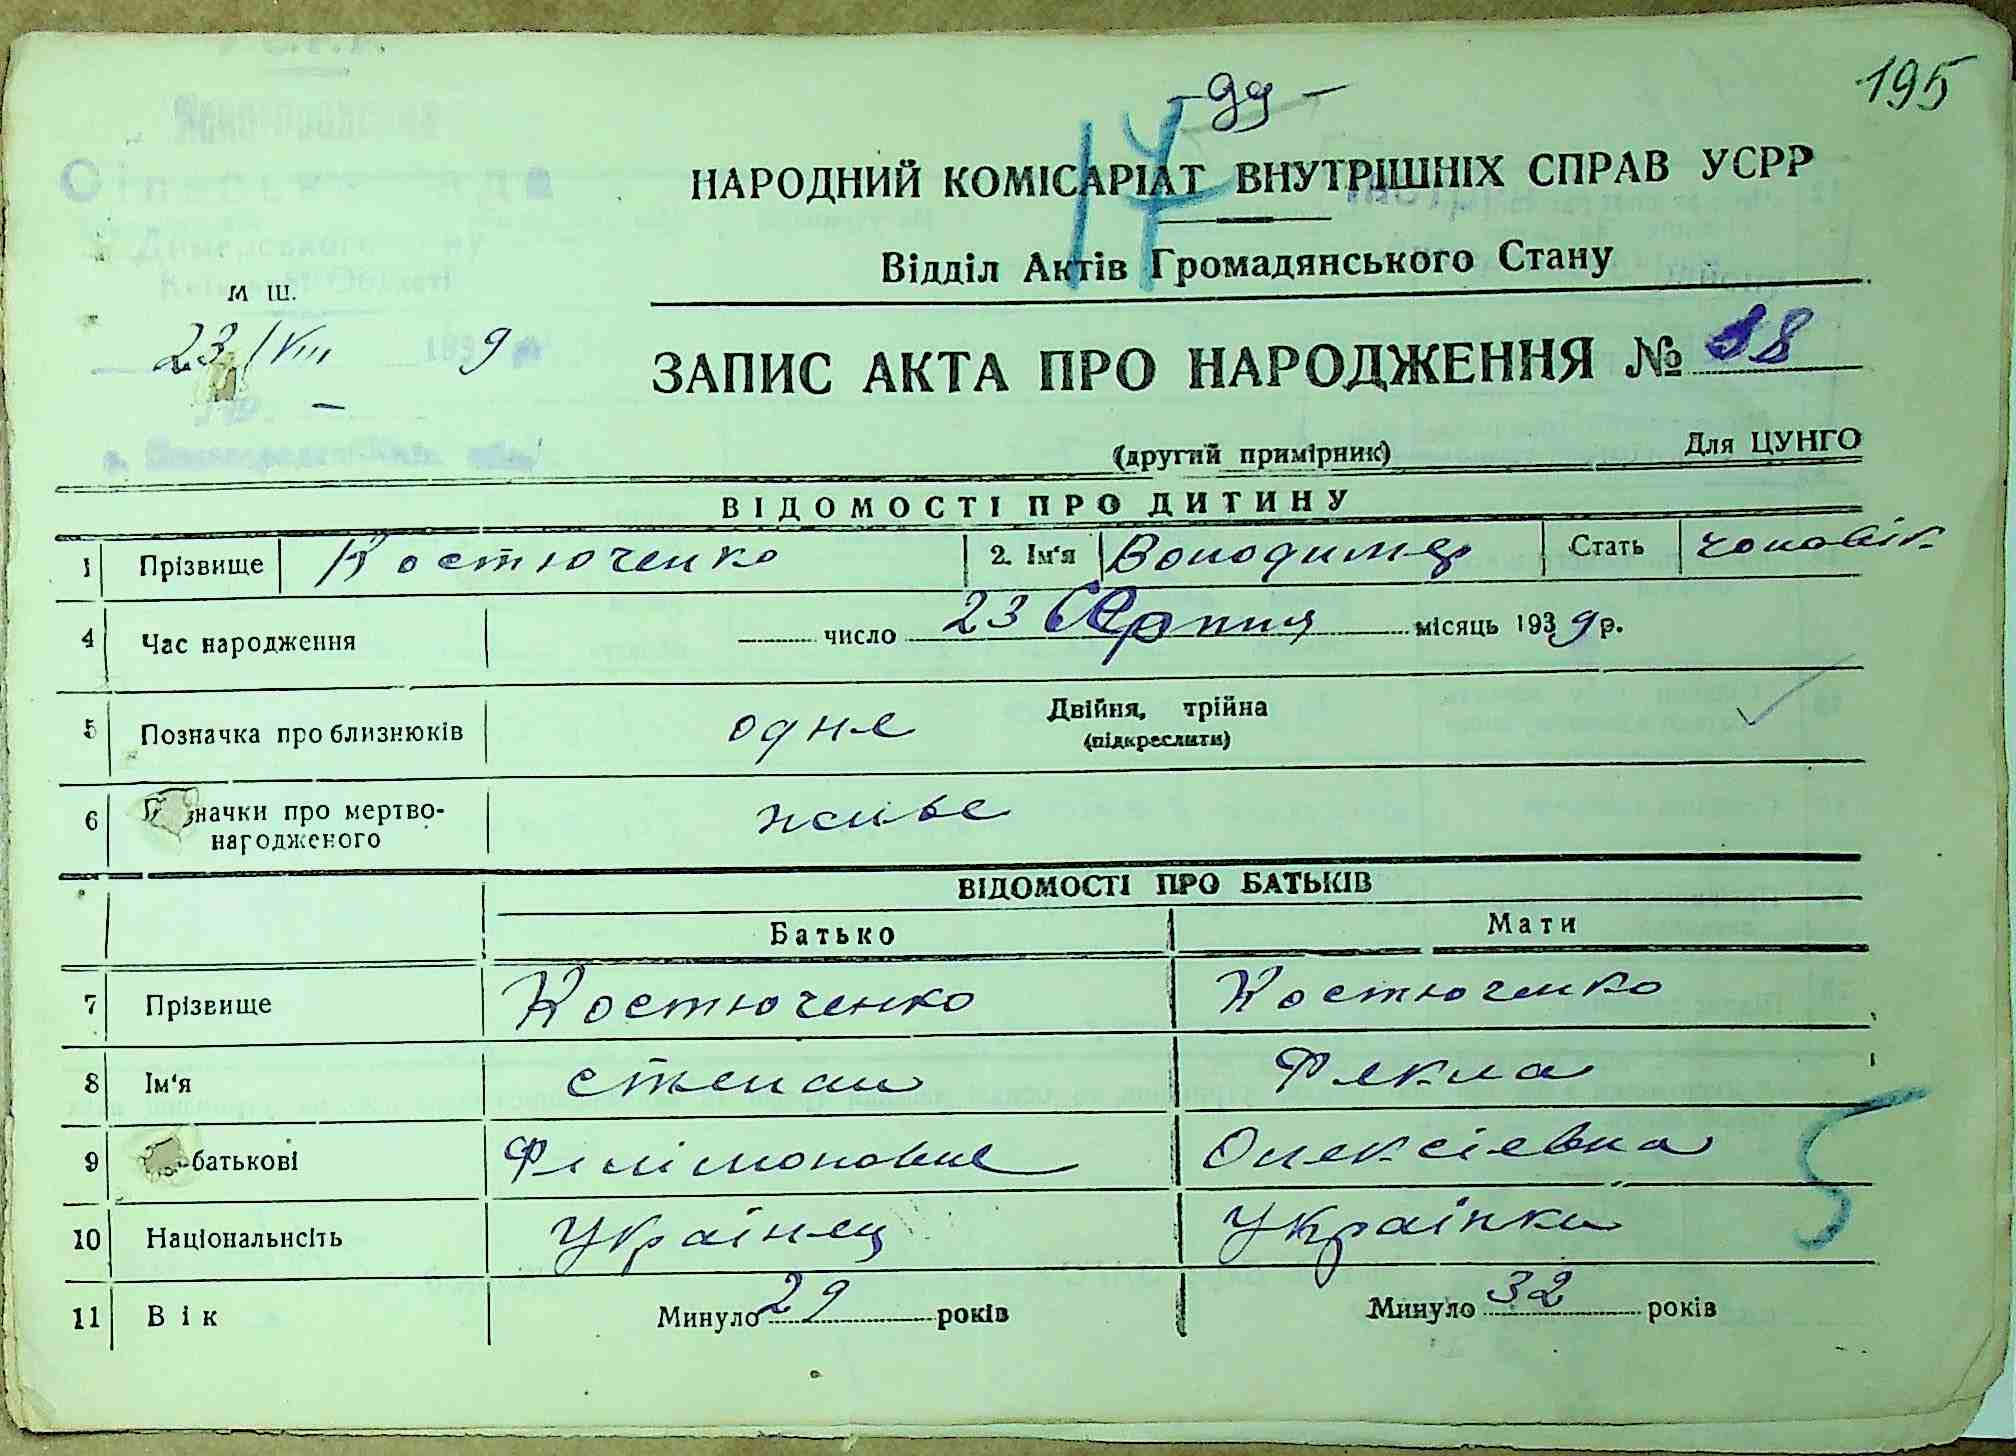 195
- 99 -
14
НАРОДНИЙ КОМІСАРІАТ ВНУТРІШНІХ СПРАВ УСРР
Відділ Актів Громадянського Стану
м Ш.
23/VIII 1939
ЗАПИС АКТА ПРО НАРОДЖЕННЯ № 38
(другий примірник) Для ЦУНГО
ВІДОМОСТІ ПРО ДИТИНУ
1 Прізвище Костюченко 2. Ім'я Володимер Стать чоловік
4 Час народження число 23 Серпня місяць 1939 р.
5 Позначка про близнюків одне Двійня, трійна
(підкреслити)
6 значки про мертво-
народженого живе
ВІДОМОСТІ ПРО БАТЬКІВ
Батько Мати
7 Прізвище Костюченко Костюченко
8 Ім'я Степан Фекла
9 -батькові Філімонович Олексієвна
10 Національнсіть Українец Українка
5
11 Вік Минуло 29 років Минуло 32 років